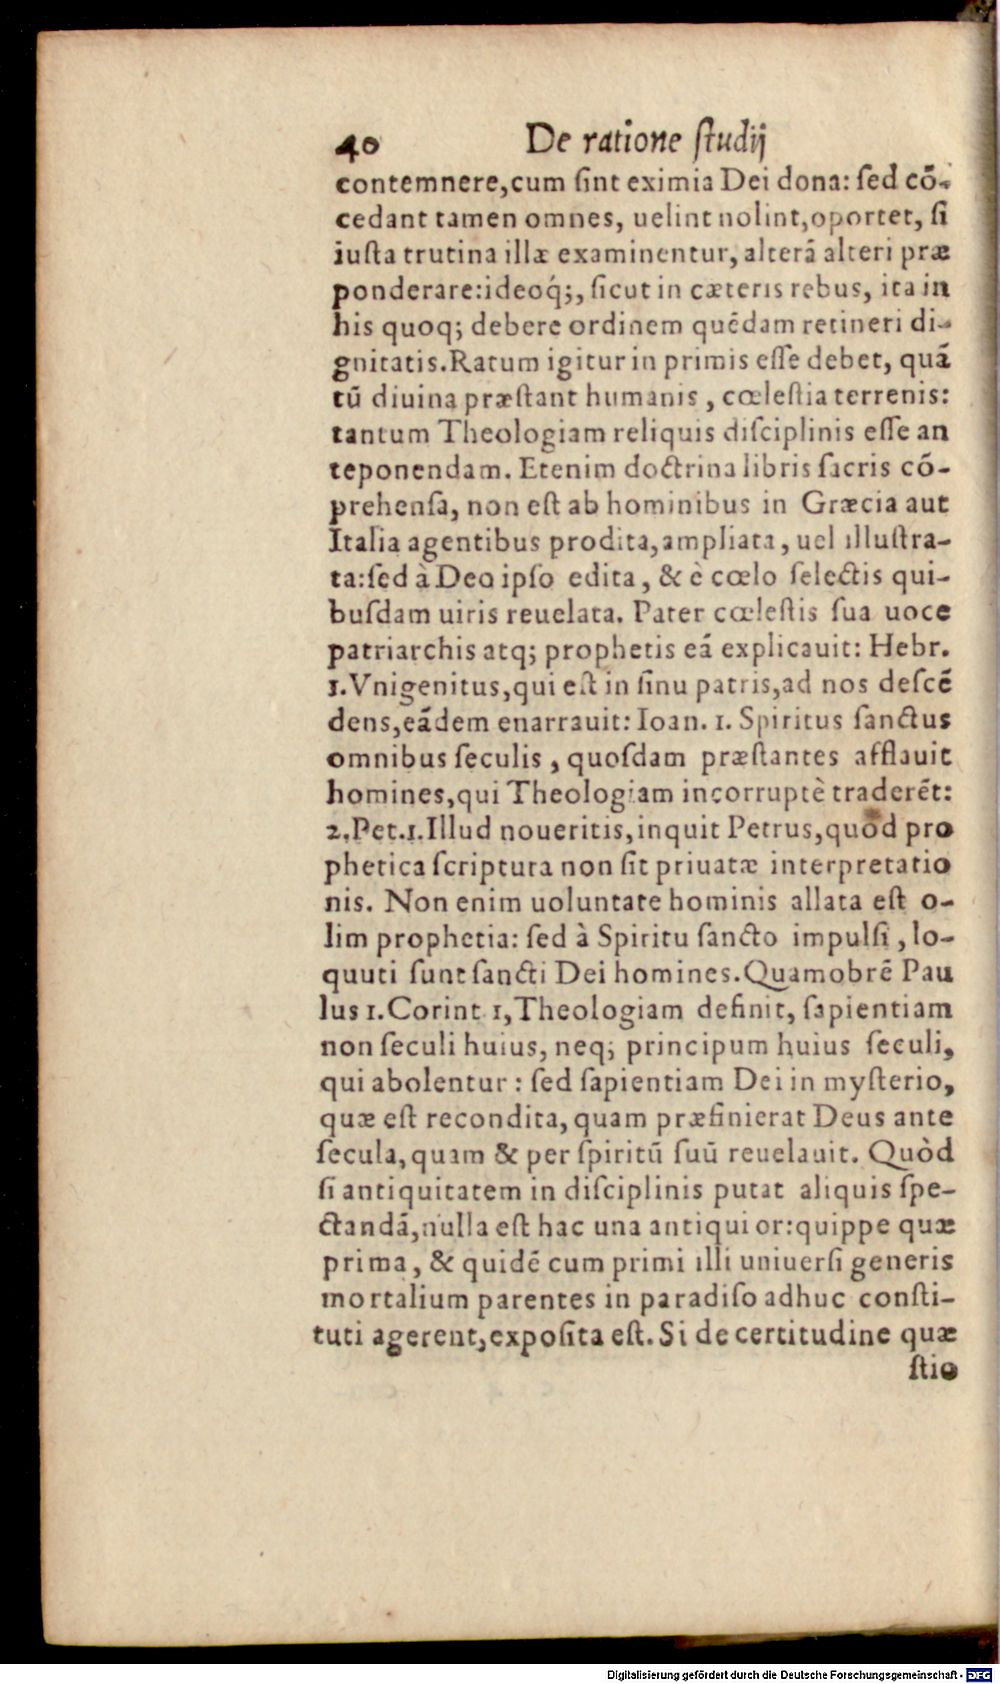 40 De ratione ſtudij
contemnere,cum ſint eximia Dei dona: ſed cō-
cedant tamen omnes, uelint nolint,oportet, ſi
iuſta trutina illæ examinentur, alterā alteri præ
ponderare:ideoq́;, ſicut in cæteris rebus, ita in
his quoq; debere ordinem quēdam retineri di-
gnitatis.Ratum igitur in primis eſſe debet, quā
tū diuina præſtant humanis, cœleſtia terrenis:
tantum Theologiam reliquis diſciplinis eſſe an
teponendam. Etenim doctrina libris ſacris cō-
prehenſa, non eſt ab hominibus in Græcia aut
Italia agentibus prodita,ampliata, uel illuſtra-
ta:ſed à Deo ipſo edita, & è cœlo ſelectis qui-
buſdam uiris reuelata. Pater cœleſtis ſua uoce
patriarchis atq; prophetis eā explicauit: Hebr.
1.Vnigenitus,qui eſt in ſinu patris,ad nos deſcē
dens,eādem enarrauit: Ioan. 1. Spiritus ſanctus
omnibus ſeculis, quoſdam præſtantes afflauit
homines,qui Theologiam incorruptè traderēt:
2.Pet.1.Illud noueritis,inquit Petrus,quòd pro
phetica ſcriptura non ſit priuatæ interpretatio
nis. Non enim uoluntate hominis allata eſt o-
lim prophetia: ſed à Spiritu ſancto impulſi, lo-
quuti ſunt ſancti Dei homines.Quamobrē Pau
lus 1.Corint 1,Theologiam definit, ſapientiam
non ſeculi huius, neq; principum huius ſeculi,
qui abolentur: ſed ſapientiam Dei in myſterio,
quæ eſt recondita, quam præfinierat Deus ante
ſecula,quam & per ſpiritū ſuū reuelauit. Quòd
ſi antiquitatem in diſciplinis putat aliquis ſpe-
ctandā,nulla eſt hac una antiquior:quippe quæ
prima, & quidē cum primi illi uniuerſi generis
mortalium parentes in paradiſo adhuc conſti-
tuti agerent,expoſita eſt. Si de certitudine quæ
ſtio
Digitalisierung gefördert durch die Deutsche Forschungsgemeinschaft - DFG